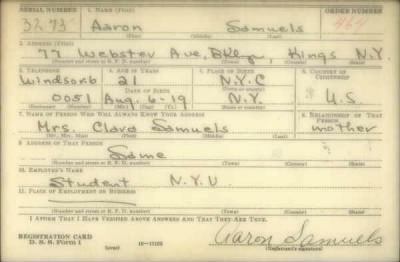 SERIAL NUMBER 1. NAME (Print) ORDER NUMBER
3273 Aaron Samuels 464
2. ADDRESS (Print)
77 Webster Ave, Bklyn Kings N.Y.
(Number and street or R. F. D. number) (Town) (County) (State)
3. TELEPHONE 4. AGE IN YEARS 5. PLACE OF BIRTH 6. COUNTRY OF CITIZENSHIP
Windsor 6 21 N.Y.C
DATE OF BIRTH (Town or county)
0051 Aug. 6-19 N.Y. U.S.
(Exchange) (Number) (Mo.) (Day) (Yr.) (State or country)
7. NAME OF PERSON WHO WILL ALWAYS KNOW YOUR ADDRESS 8. RELATIONSHIP OF THAT PERSON
Mrs. Clara Samuels mother
(Mr., Mrs., Miss) (First) (Middle) (Last)
9. ADDRESS OF THAT PERSON
Same
(Number and street or R. F. D. number) (Town) (County) (State)
10. EMPLOYER'S NAME
Student N.Y.U
11. PLACE OF EMPLOYMENT OR BUSINESS
(Number and street or R. F. D. number) (Town) (County) (State)
I AFFIRM THAT I HAVE VERIFIED ABOVE ANSWERS AND THAT THEY ARE TRUE.
REGISTRATION CARD
D. S. S. Form 1 (over) Aaron Samuels
(Registrant's signature)